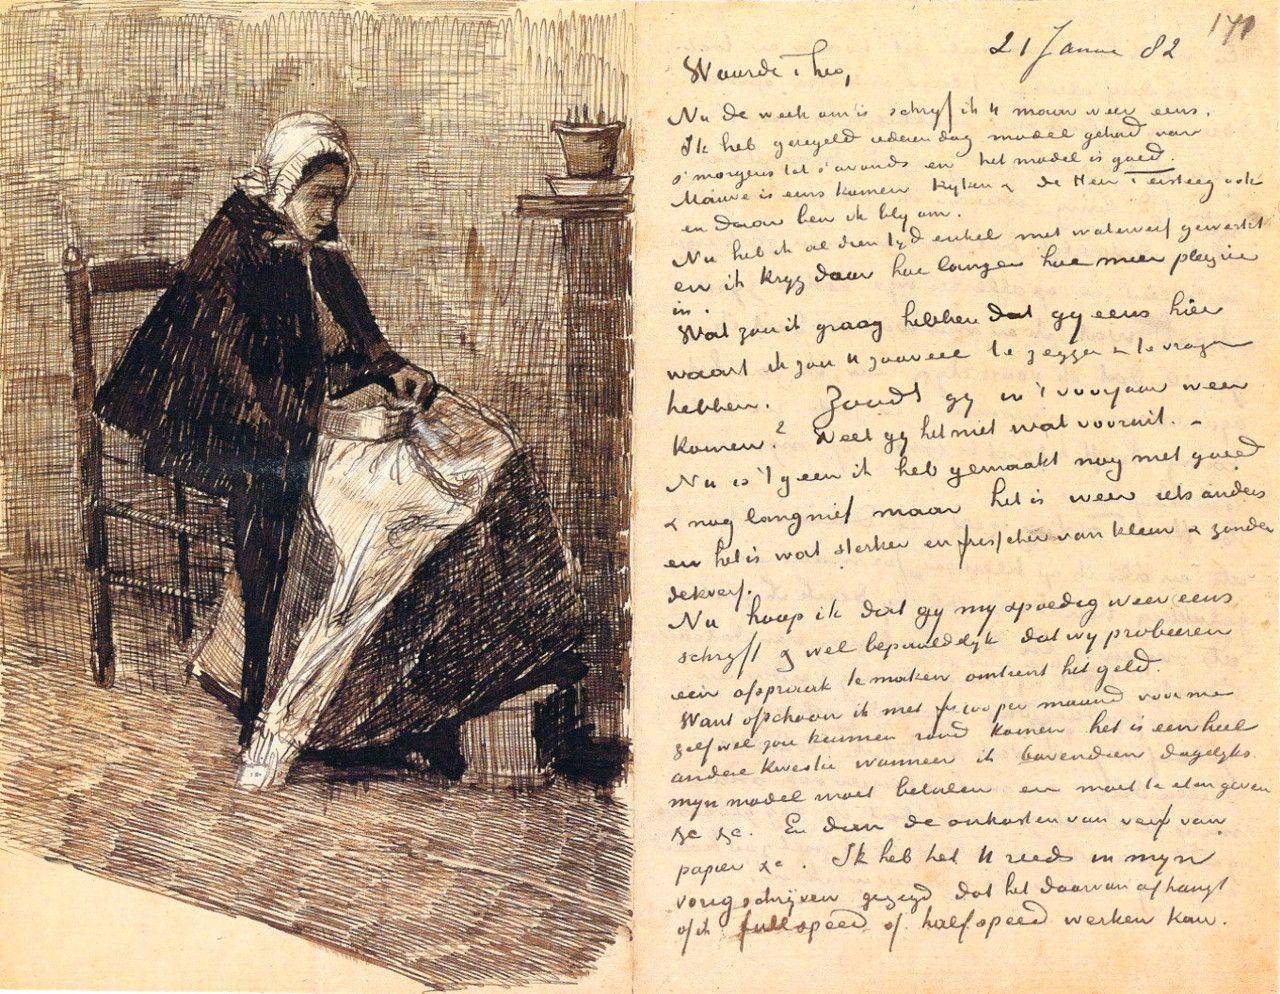 171
21 Januar 82
Waarde Theo,
Nu de week om is schrijf ik U maar weer eens.
Ik heb geregeld iederen dag model gehad van
s'morgens tot s'avonds en het model is goed.
Mauve is eens komen kyken & de Heer Tersteeg ook
en daar ben ik bly om.
Nu heb ik al dien tyd enkel met waterverf gewerkt
en ik kryg daar hoe langer hoe meer pleizier
in.
Wat zou ik graag hebben dat gy eens hier
waart ik zou U zooveel te zeggen & te vragen
hebben. Zoudt gy in 't voorjaar weer
komen? Weet gy het niet wat vooruit. –
Nu is 't geen ik heb gemaakt nog niet goed
& nog lang niet maar het is weer iets anders
en het is wat sterker en frisscher van kleur & zonder
dekverf.
Nu hoop ik dat gy my spoedig weer eens
schryft & wel bepaaldelyk dat wy probeeren
een afspraak te maken omtrent het geld.
Want ofschoon ik met fr 100 per maand voor me
zelf wel zou kunnen rond komen het is een heel
andere kwestie wanneer ik bovendien dagelyks
myn model moet betalen en moet te eten geven
&c &c. En dien de onkosten van verf van
papier &c. Ik heb het U reeds in myn
vorig schrijven gezegd dat het daarvan afhangt
of ik full speed of half speed werken kan.